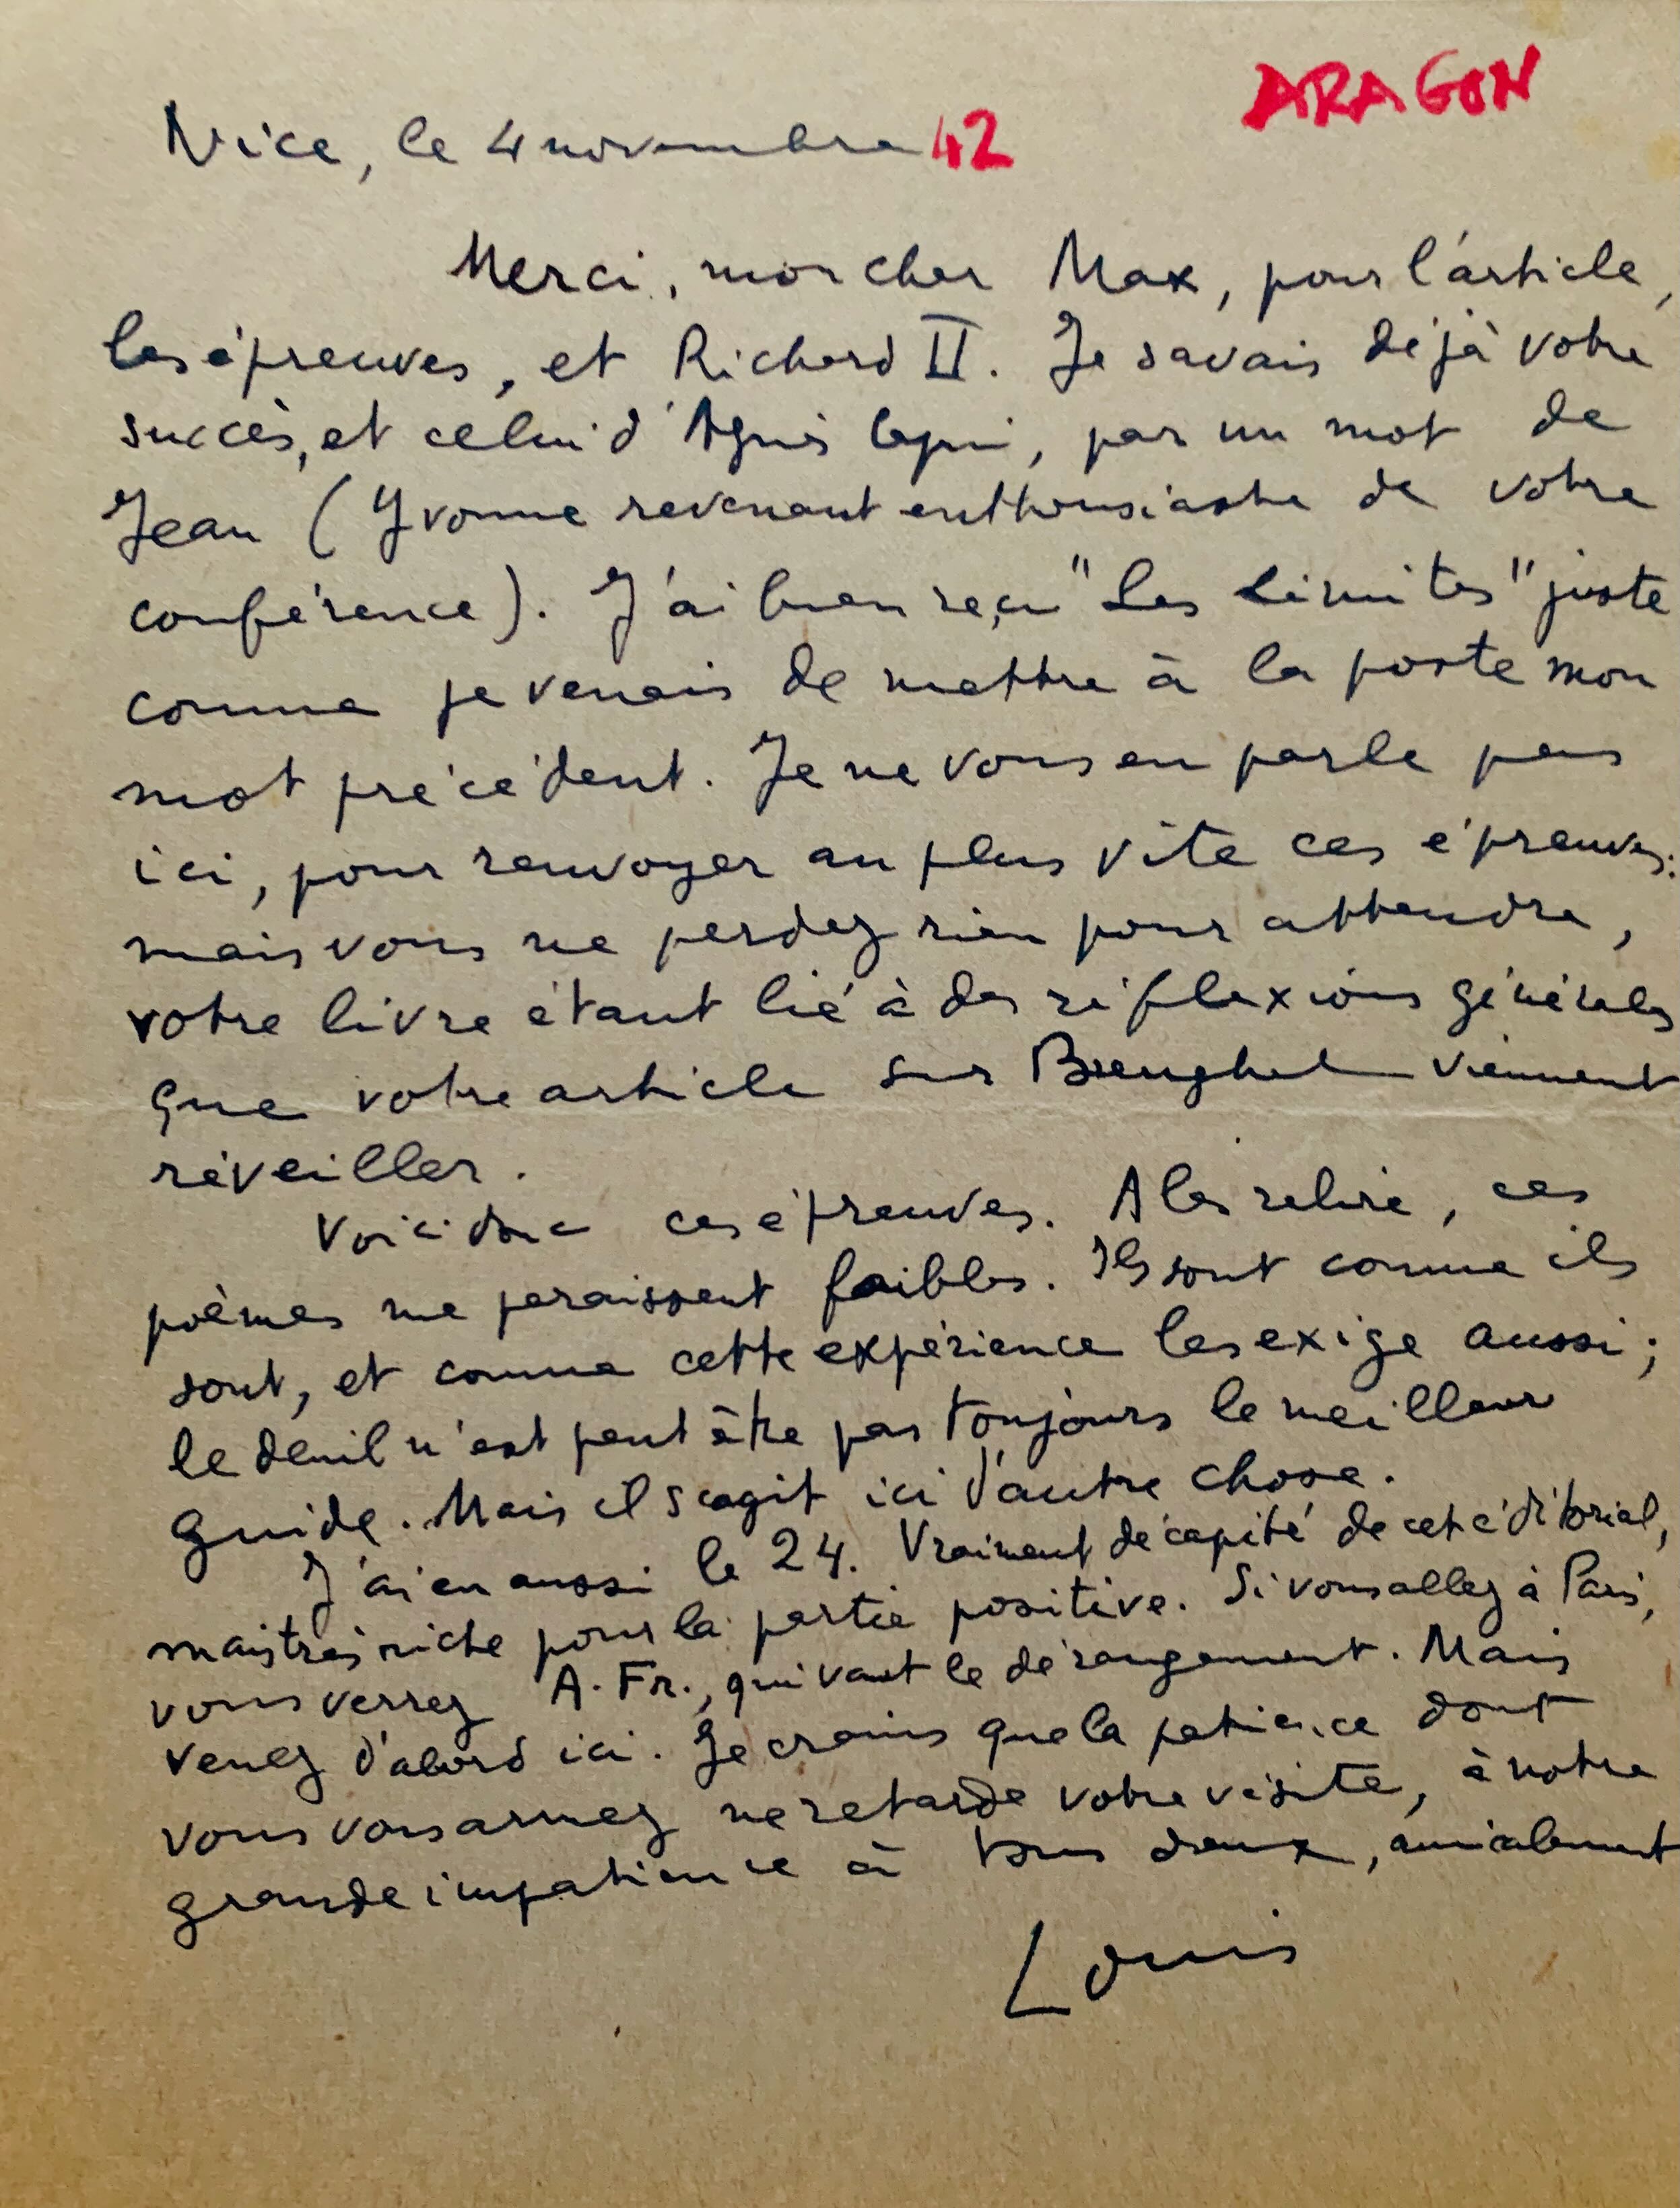 ARAGON
Nice, le 4 novembre 42
Merci, mon cher Max, pour l'article,
les épreuves, et Richard II. Je savais déjà votre
succès, et celui d'Agnès Capri, par un mot de
Jean (Yvonne revenant enthousiaste de votre
conférence). J'ai bien reçu "Les Limites" juste
comme je venais de mettre à la poste mon
mot précédent. Je ne vous en parle pas
ici, pour renvoyer au plus vite ces épreuves:
mais vous ne perdez rien pour attendre,
votre livre étant lié à des réflexions générales
que votre article sur Breughel viennent
réveiller.
Voici donc ces épreuves. A les relire, ces
poèmes me paraissent faibles. Ils sont comme ils
sont, et comme cette expérience les exige aussi;
le deuil n'est peut être pas toujours le meilleur
guide. Mais il s'agit ici d'autre chose.
J'ai eu aussi le 24. Vraiment décapité de cet éditorial,
mais très riche pour la partie positive. Si vous allez à Paris,
vous verrez A. Fr., qui vaut le dérangement. Mais
venez d'abord ici. Je crains que la patience dont
vous vous armez ne retarde votre visite, à notre
grande impatience à tous deux, amicalement
Louis